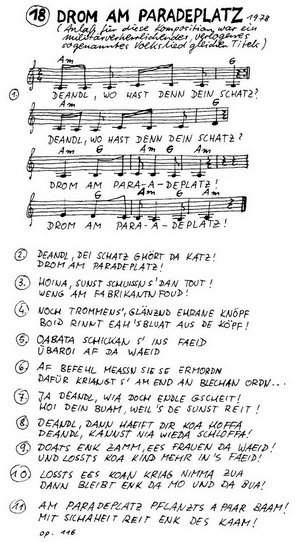 18 DROM AM PARADEPLATZ 1978
(Anlaß für diese Komposition war ein
militärverherrlichendes, verlogenes
sogenanntes Volkslied gleichen Titels)
Am G
1. DEANDL, WO HAST DENN DEIN SCHATZ?
Am G
DEANDL, WO HAST DENN DEIN SCHATZ?
Am G Am G Am
DROM AM PARA-A-DEPLATZ!
G Am G Am
DROM AM PARA-A-DEPLATZ!
2. DEANDL, DEI SCHATZ GHÖRT DA KATZ!
DROM AM PARADEPLATZ!
3. HOINA, SUNST SCHUISSN S'DAN TOUT!
WENG AM FABRIKANTN FOUD!
4. NOCH TROMMENS', GLÄNZND EHRANE KNÖPF
BOID RINNT EAH'S BLUAT AUS DE KÖPF!
5. OABATA SCHICKAN S' INS FAEID
ÜBAROI AF DA WAEID
6. AF BEFEHL MEASSN SIE SE ERMORDN
DAFÜR KRIANGT S' AM END AN BLECHAN ORDN...
7. JA DEANDL, WIA DOCH ENDLE GSCHEIT!
HOI DEIN BUAM, WEIL'S DE SUNST REIT!
8. DEANDL, DANN HAEIFT DIR KOA HOFFA
DEANDL, KANNST NIA WIEDA SCHLOFFA!
9. DOATS ENK ZAMM, EES FRAUEN DA WAEID!
UND LOSSTS KOA KIND MEHR IN'S FAEID!
10 LOSSTS EES KOAN KRIAG NIMMA ZUA
DANN BLEIBT ENK DA MO UND DA BUA!
11 AM PARADEPLATZ PFLANZTS A PAAR BAAM!
MIT SICHAHEIT REIT ENK DES KAAM!
op. 116